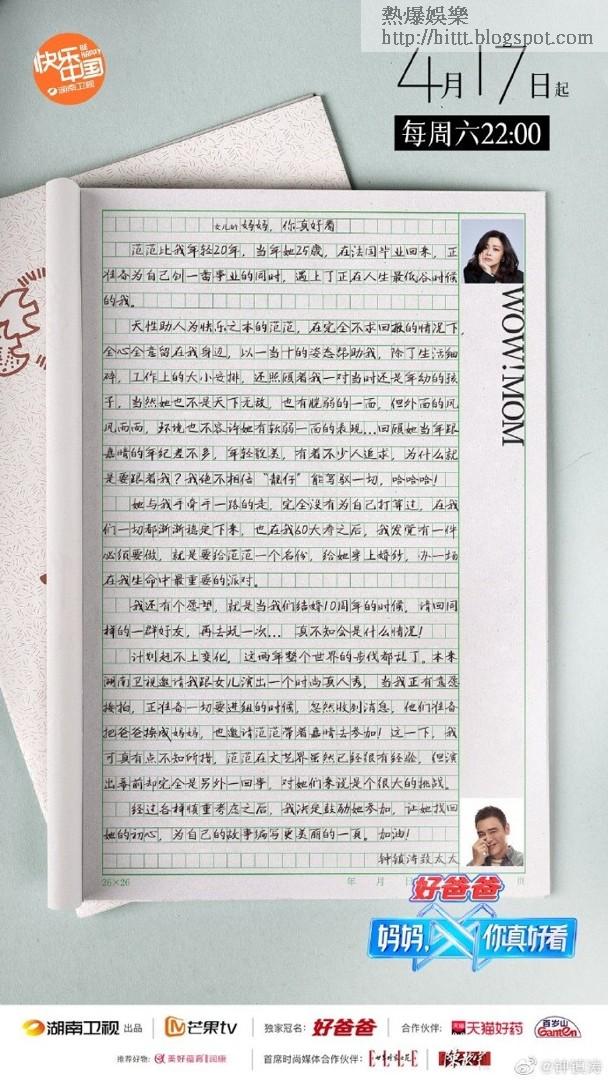 熱爆娛樂
http://hittt.blogspot.com
快乐中国
BE HAPPY
湖南卫视
4月17日起
每周六22:00
女儿的妈妈，你真好看
范范比我年轻20年，当年她25歲，在法国毕业回来，正
准备为自己创一番事业的同时，遇上了正在人生最低谷时候
的我。
天性助人为快乐之本的范范，在完全不求回报的情况下，
全心全意留在我身边，以一当十的姿态帮助我，除了生活细
碎，工作上的大小安排，还照顾着我一对当时还是年幼的孩
子，当然她也不是天下无敌，也有脆弱的一面，但外面的风
风雨雨，环境也不容许她有软弱一面的表现...回顾她当年跟
嘉晴的年纪差不多，年轻貌美，有着不少人追求，为什么就
是要跟着我？我绝不相信“靓仔”能驾驭一切，哈哈哈！
她与我手牵手一路的走，完全没有为自己打算过，在我
们一切都渐渐稳定下来，也在我60大寿之后，我发觉有一件
必须要做，就是要给范范一个名份，给她穿上婚纱，办一场
在我生命中最重要的派对。
我还有个愿望，就是当我们结婚10周年的时候，请回同
样的一群好友，再去玩一次... 真不知会是什么情况！
计划赶不上变化，这两年整个世界的步伐都乱了。本来
湖南卫视邀请我跟女儿演出一个时尚真人秀，当我正有意愿
接拍，正准备一切要进组的时候，忽然收到消息，他们准备
把爸爸换成妈妈，也邀请范范带着嘉晴去参加！这一下，我
可真有点不知所措，范范在文艺界虽然已经很有经验，但演
出幕前却完全是另外一回事，对她们来说是个很大的挑战。
经过各样慎重考虑之后，我决定鼓励她参加，让她找回
她的初心，为自己的故事编写更美丽的一頁。加油！
钟镇涛致太太
WOW!MOM
26×26
年 月 日
页
好爸爸
妈妈，你真好看
湖南卫视 出品
芒果tv
独家冠名：好爸爸
合作伙伴：天猫 天猫好药
百岁山 Ganten
推荐好物：美好蕴育 润康
首席时尚媒体合作伙伴：ELLE
@钟镇涛